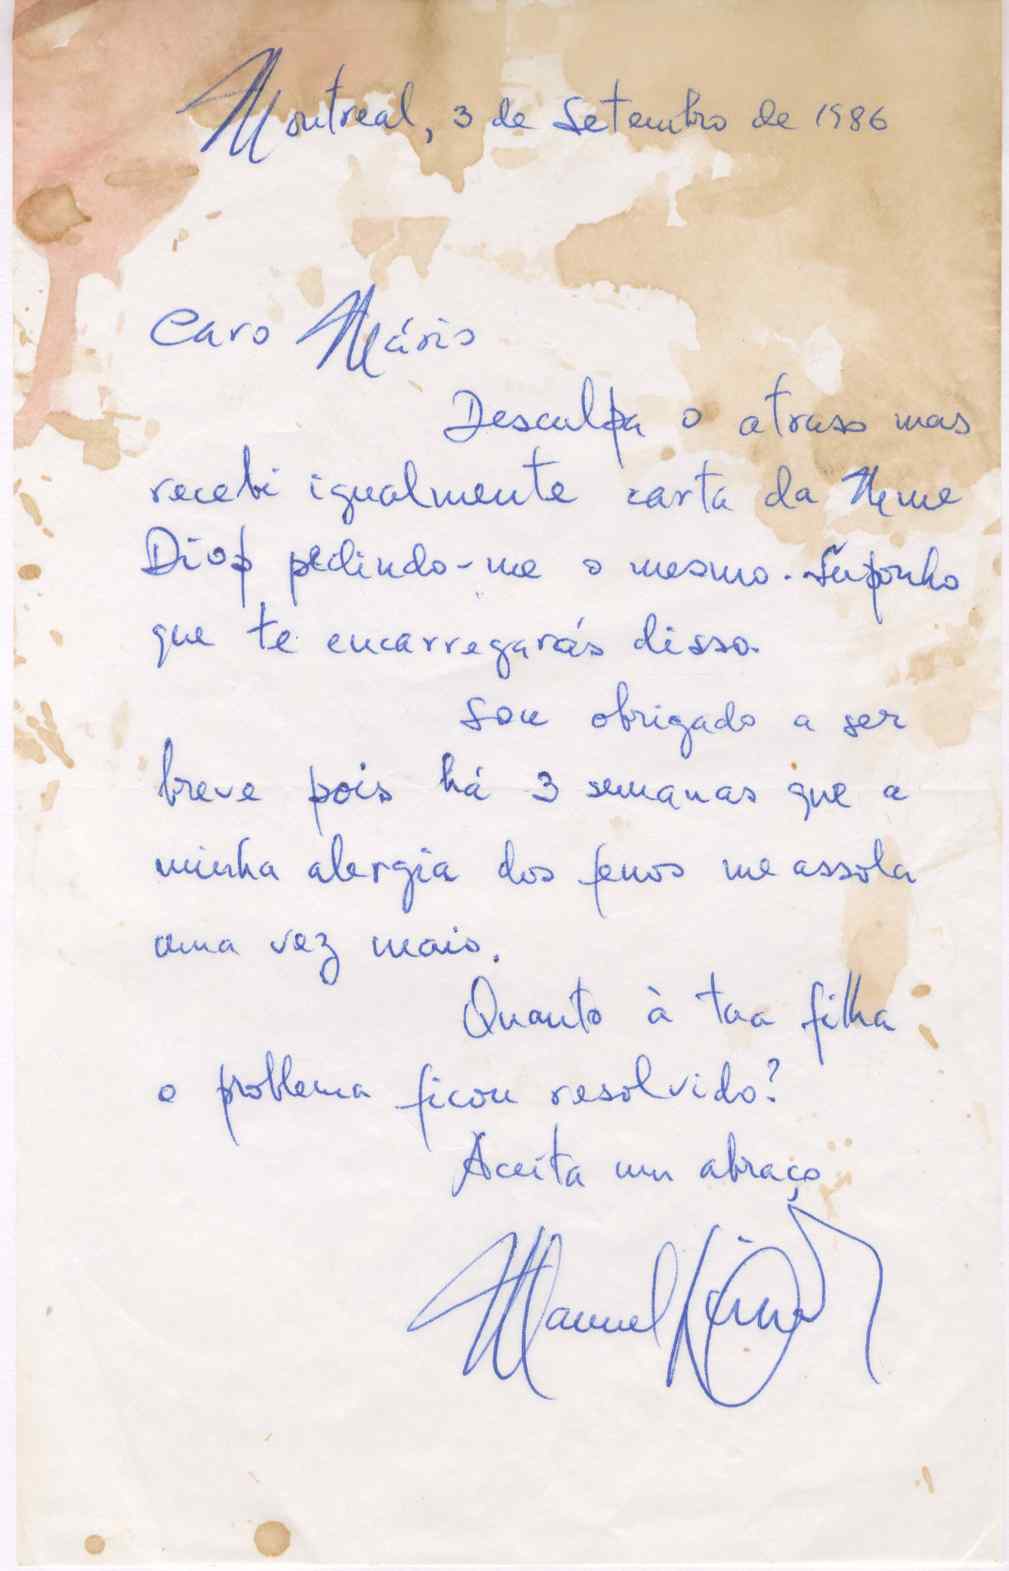 Montreal, 3 de Setembro de 1986
Caro Mário
Desculpa o atraso mas
recebi igualmente carta da Mme
Diop pedindo-me o mesmo. Suponho
que te encarregarás disso.
Sou obrigado a ser
breve pois há 3 semanas que a
minha alergia dos fenos me assola
uma vez mais.
Quanto à tua filha
o problema ficou resolvido?
Aceita um abraço
Manuel